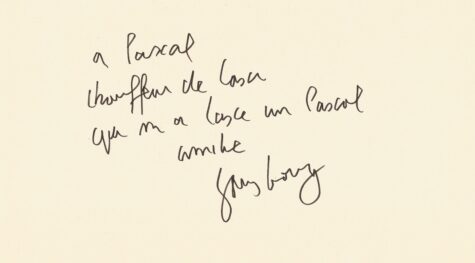 a Pascal
chauffeur de Casa
qui m a laisé un Pascal
amitié
Gainsbourg